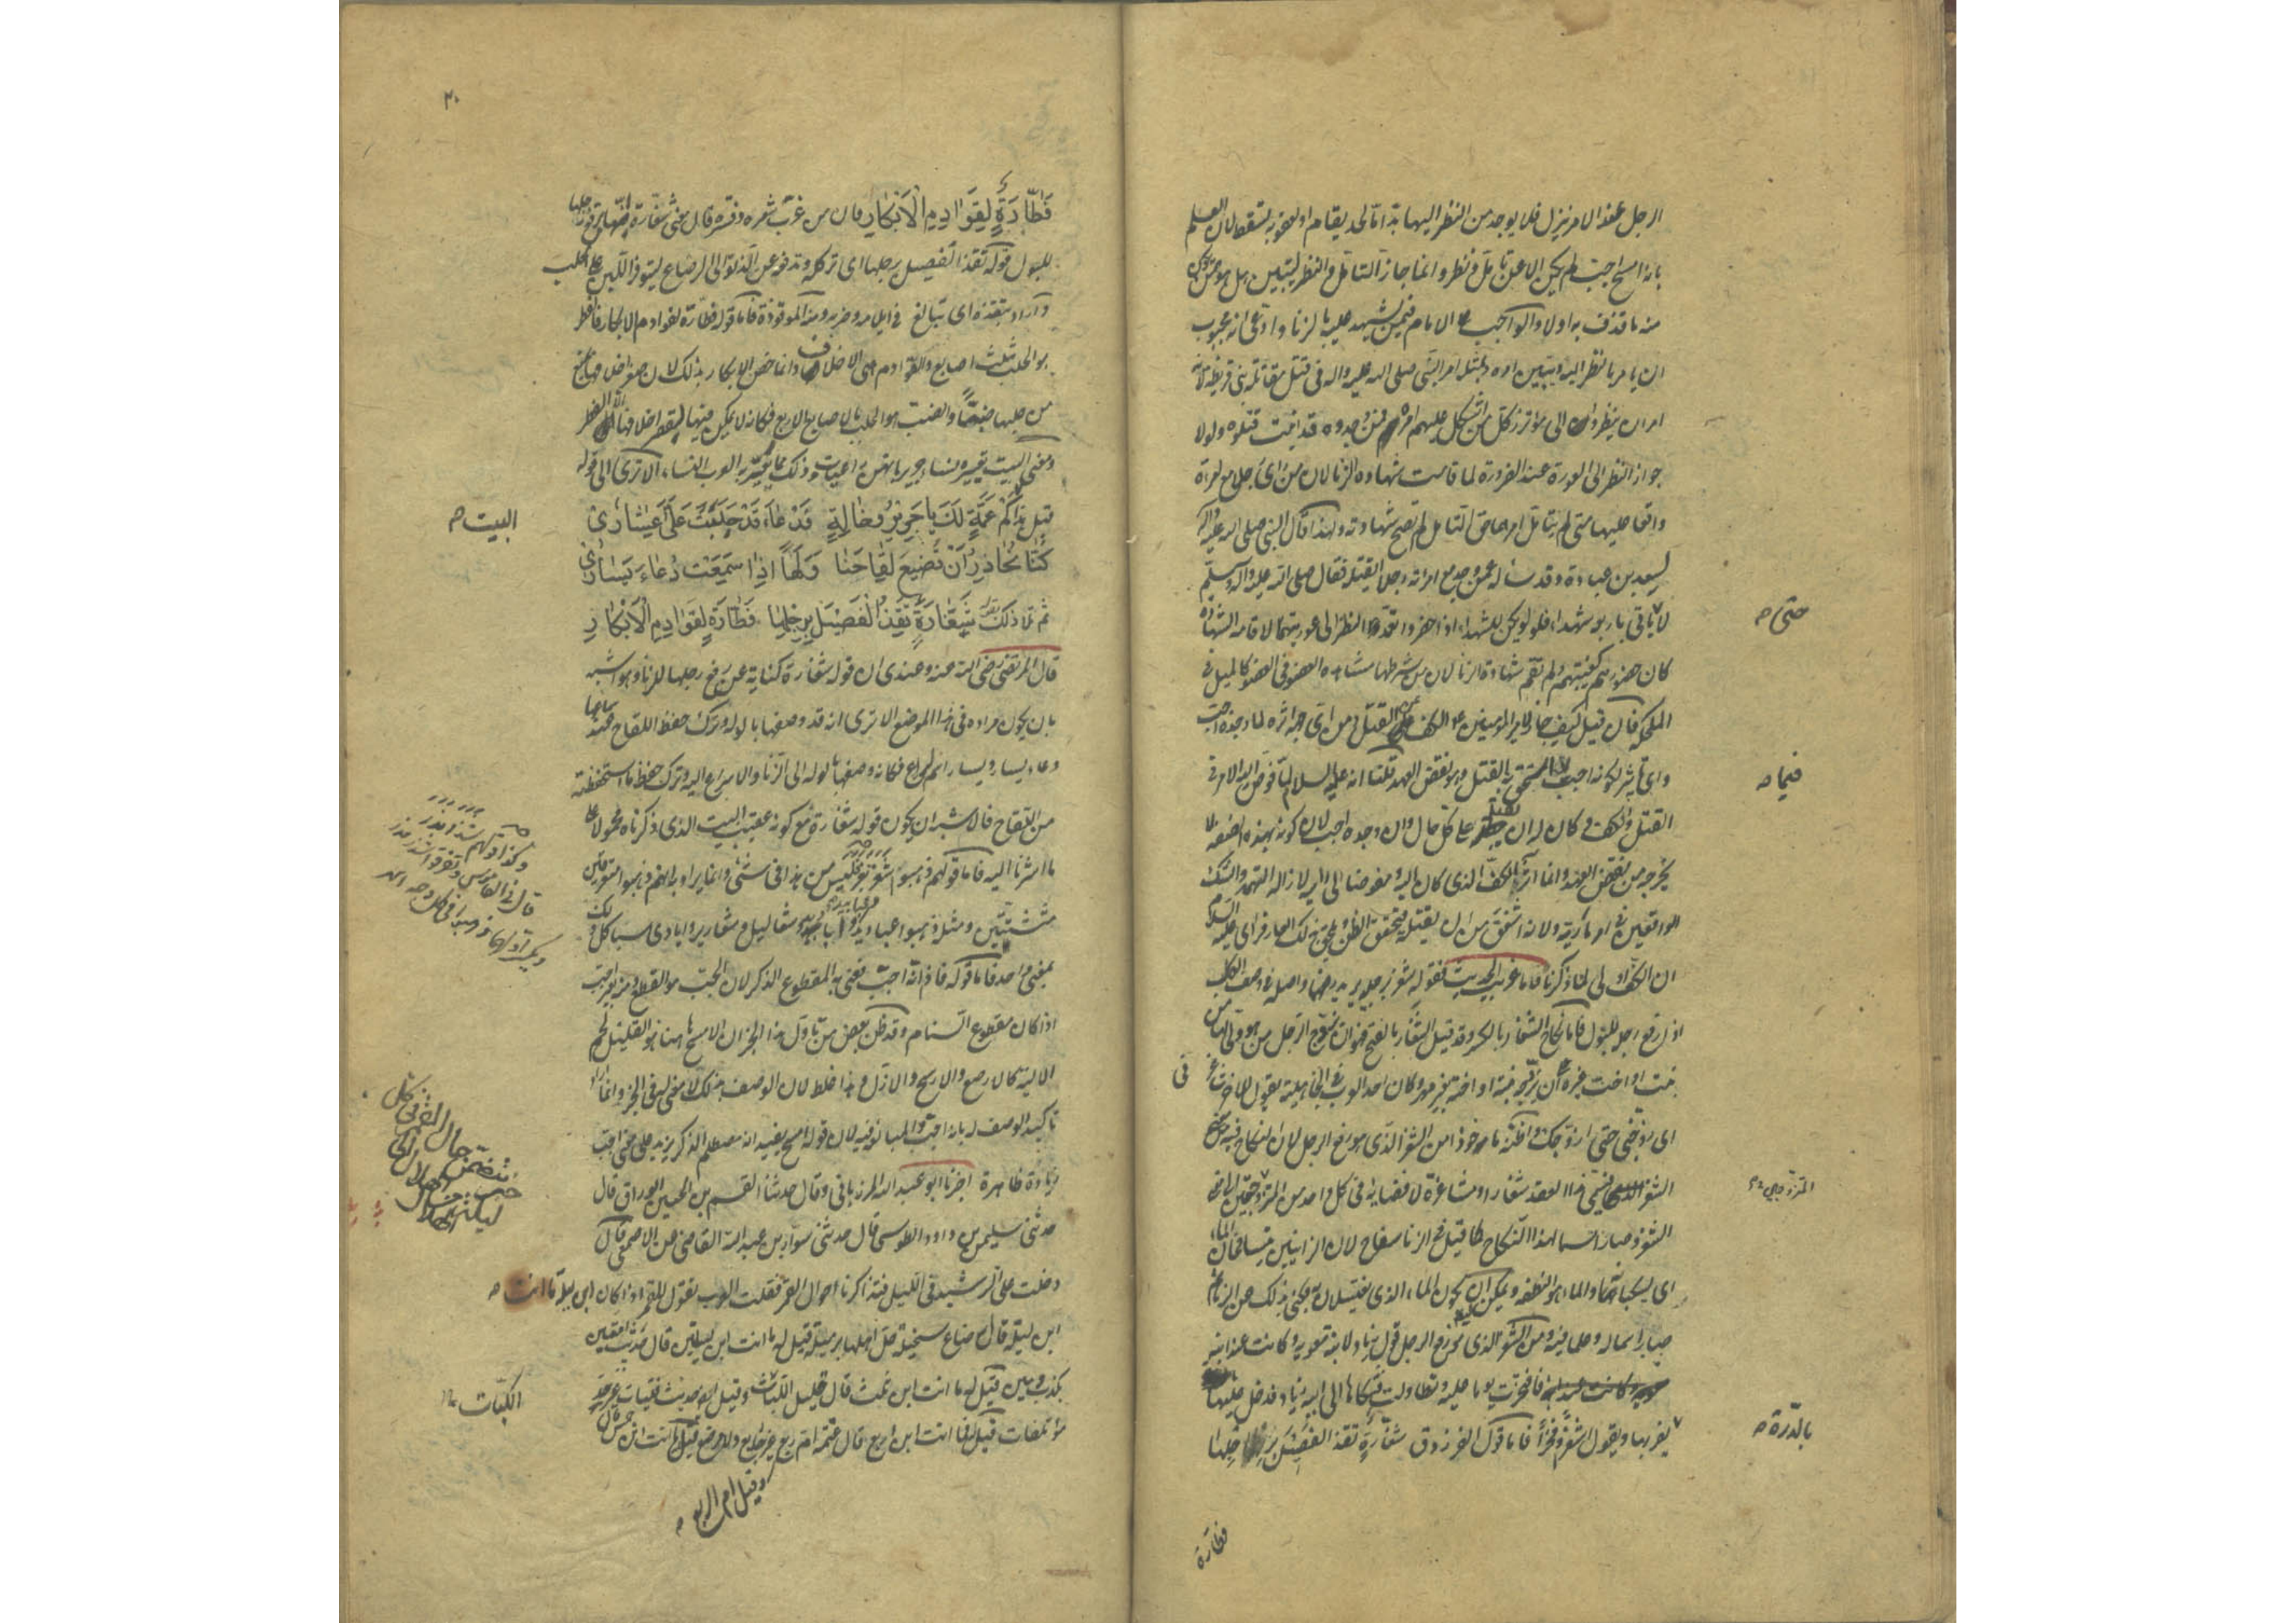 الرجل عنده الامر ينزل فلا يوجد من النظر اليها بدّ امّا لحدّ يقام او لعقوبة تسقط لان العلم
بانه امسح اجب لم يكن الا عن تأمل ونظر وانما جاز التأمل والنظر ليتبين هل هو ممن يكون
منه ما قذف به اولا والواجب على الامام فيمن شهد عليه بالزنا وادّعى انه مجبوب
ان يأمر بالنظر اليه وتبيين امره وبمثله امر النبي صلى الله عليه واله في قتل مقاتلة بني قريظة لانه
امر ان ينظروا الى مؤتزر كل من اشكل عليهم امره فمن وجدوه قد انبت قتلوه ولولا
جواز النظر الى العورة عند الضرورة لما قامت شهادة الزنا لان من رأى رجلا مع امرأة
واقعا عليها متى لم يتأمل امرهما حق التأمل لم تصح شهادته ولهذا قال النبي صلى الله عليه واله
لسعد بن عبادة وقد سأله عمن وجد مع امرأته رجلا أيقتله فقال صلى الله عليه واله وسلم
لا حتى يأتي باربعة شهداء فلو لم يكن للشهداء اذا حضروا تعمد النظر الى عورتيهما لاقامة الشهادة
حتى
كان حضورهم كغيبتهم ولم تقم شهادة الزنا لان من شرطها مشاهدة العضو في العضو كالميل في
المكحلة فان قيل كيف جاز لامير المؤمنين ع الكف عن القتل ومن اي جهة اثره لما وجده اجب
واي تأثير لكونه اجب فيما استحق به القتل وهو نقض العهد قلنا انه عليه السلام لما فوض اليه الامر في
فيما
القتل والكف كان له ان يقتله على كل حال وان وجده اجب لان كونه بهذه الصفة لا
يخرجه من نقض العهد وانما آثر الكف الذي كان اليه ومفوضا الى رايه لازالة التهمة والشك
الواقعين في امر مارية ولانه اشفق من ان يقتله فيتحقق الظن ويلحق بذلك العار فرأى عليه السلام
ان الكف اولى لما ذكرنا فاما غريب الحديث فقوله شغر برجليه يريد رفعهما واصله في وصف الكلب
اذا رفع رجله للبول فاما نكاح الشغار بالكسر وقد قيل الشغار بالفتح فهو ان يتزوج الرجل من هو وليها من
بنت او اخت غيره على ان يزوجه بنته او اخته بغير مهر وكان احد العرب في الجاهلية يقول للاخر شاغرني
في
اي زوجني حتى ازوجك واظنه مأخوذا من الشغر الذي هو رفع الرجل لان النكاح فيه معنى
الشغر فسمي هذا العقد شغارا ومشاغرة لافضائه في كل واحد من المتزوجين الى معنى
المتزوجين
الشغر وصار اسما لهذا النكاح كما قيل في الزنا سفاح لان الزانيين يتسافحان الماء
اي يسكبانه والماء هو النطفة ويمكن ان يكون الماء الذي يغتسلان به فكنى بذلك عن الزنا ثم
صار اسما له وعلما فيه ومن الشغر الذي هو رفع الرجل قول زياد لابنة معوية وكانت عند ابنه
فافتخرت يوما عليه وتطاولت فشكاها الى ابيه زياد فدخل عليها
يضربها ويقول اشغرا وفخرا فاما قول الفرزدق شغّارة تقذ الفصيل برجلها
بالدرة
فطارة
٢٠
فَطّارَةٍ لِقَوَادِمِ الْاَبْكَارِ فان من غرّب شعره وفسره قال معنى شغارة انها ترفع رجلها
للبول وقوله تقذ الفصيل برجلها اي تركله وتدفعه عن الدنو الى الرضاع ليتوفر اللبن على الحلب
واراد بتقذه اي تبالغ في ايلامه وضربه ومنه الموقوذة فاما قوله فطارة لقوادم الابكار فالفطر
هو الحلب بثلث اصابع والقوادم هي الاخلاف وانما خص الابكار بذلك لان صغر اخلافها يمنع
من حلبها ضبّا والضبّ هو الحلب بالاصابع الاربع فكانه لا يمكن فيها لقصر اخلافها الا الفطر
ومعنى البيت تعييره لنساء جرير بانهن راعيات وذلك مما تعير به العرب النساء الا ترى الى قوله
قبل هذا كَمْ عَمَّةٍ لَكَ يا جَرِيرُ وَخَالَةٍ فَدْعَاءَ قَدْ حَلَبَتْ عَلَيَّ عِشَارِيْ
البيت
كُنَّا نُحَاذِرُ اَنْ تُضِيعَ لِقَاحَنَا وَلَهًا اِذَا سَمِعَتْ دُعَاءَ يَسَارِ
ثم تلا ذلك بقوله شَغّارَةً تَقِذُ الْفَصِيلَ بِرِجْلِهَا فَطّارَةٍ لِقَوَادِمِ الْاَبْكَارِ
قال المرتضى رضي الله عنه وعندي ان قوله شغارة كناية عن رفع رجلها للزنا وهو اشبه
بان يكون مراده في هذا الموضع الا ترى انه قد وصفها بالوله وترك حفظ اللقاح عند سماعها
دعاء يسار ويسار اسم لراع فكانه وصفها بالوله الى الزنا والاسراع اليه وترك حفظ ما استحفظته
من اللقاح فالاشبه ان يكون قوله شغارة مع كونه عقيب البيت الذي ذكرناه محمولا على
ما اشرنا اليه فاما قولهم ذهبوا شغر بغر فليس من هذا في شئ وانما يراد به انهم ذهبوا متفرقين
متشتتين ومثله ذهبوا عباديد وابابيد وشعاليل وشعارير وايادي سبا كل ذلك
بمعنى واحد فاما قوله فاذا انه اجب فعنى به المقطوع الذكر لان الجب هو القطع ومنه بعير اجب
اذا كان مقطوع السنام وقد ظن بعض من تأول هذا الخبر ان الامسح هاهنا هو القليل لحم
الالية كالارصع والارسح والازل وهذا غلط لان الوصف بذلك لا معنى له في الخبر وانما اراد
تأكيد الوصف له بانه اجب والمبالغة فيه لان قوله امسح يفيد انه مصطلم الذكر يزيد على معنى اجب
زيادة ظاهرة اخبرنا ابو عبيد الله المرزباني وقال حدثنا القسم بن الحسين الوراق قال
حدثني سليمن بن داود الطوسي قال حدثني سوار بن عبد الله القاضي عن الاصمعي قال
دخلت على الرشيد في الليل فتذاكرنا احوال القمر فقلت العرب تقول للقمر اذا كان ابن ليلة ما انت
ابن ليلة قال رضاع سخيلة حل اهلها برميلة قيل له ما انت ابن ليلتين قال حديث امتين
بكذب ومين قيل له ما انت ابن ثلث قال قليل اللباث وقيل ايضا حديث فتيات غير جد
اللباث
مؤتلفات قيل له فما انت ابن اربع قال عتمة ام ربع غير جائع ولا مرضع قيل ما انت ابن خمس قال
وقيل ام الربع
وكذا قولهم شذر مذر
قال في القاموس وتفرقوا شذر مذر
ويكسر اولهما ذهبوا في كل وجه
تتضمن حال القمر في كل
ليلة